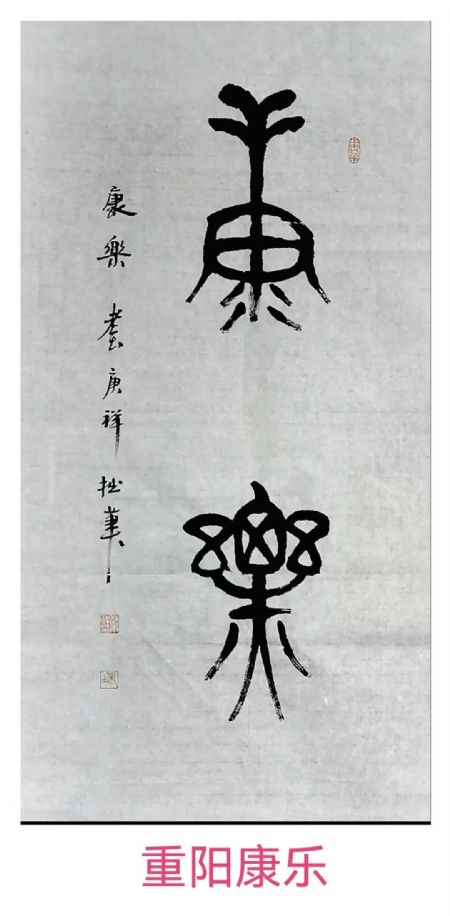 康樂
康樂 耋庚祥 拙筆
重阳康乐